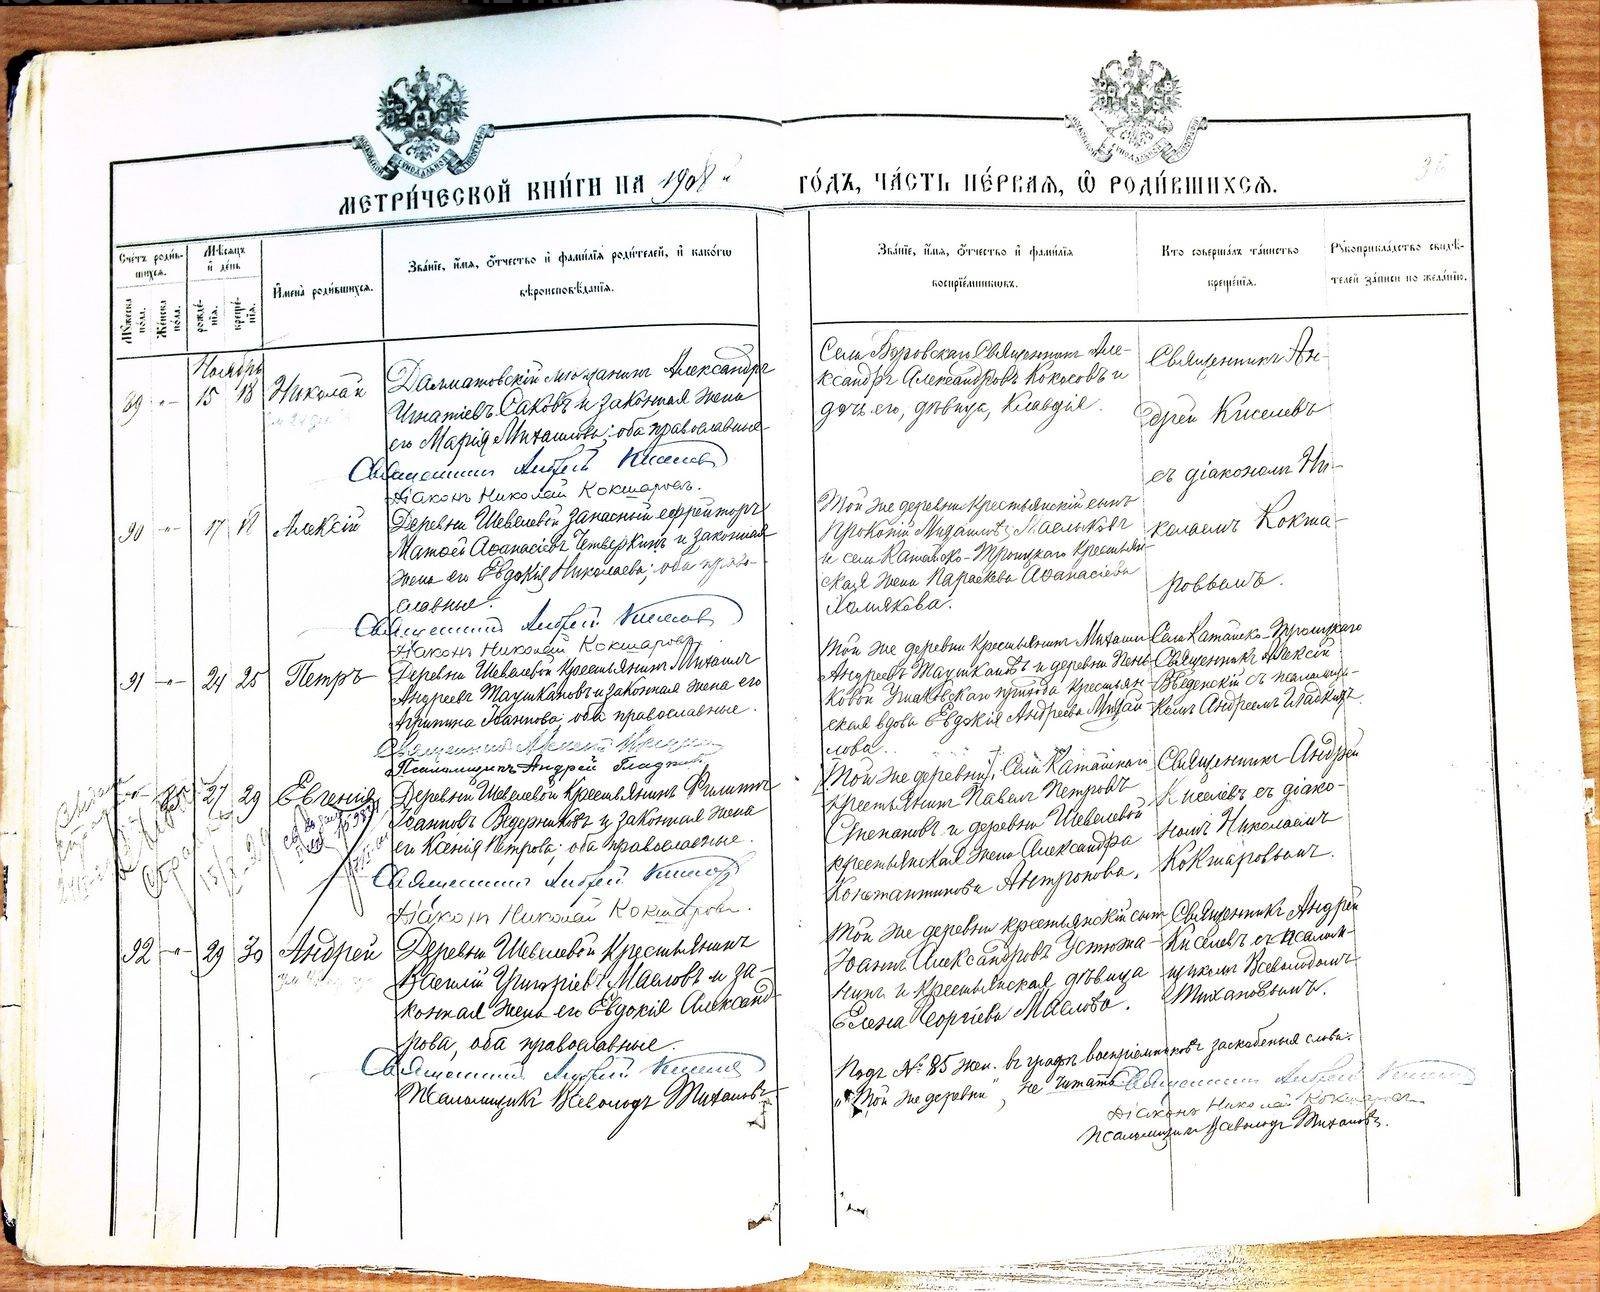 МЕТРИ́ЧЕСКОЙ КНИ́ГИ НА 1908й ГО́ДЪ, ЧА́СТЬ ПЕ́РВАЯ, Ѡ РОДИ́ВШИХСЯ.
36
Сче́тъ роди́вшихся.
Мѣ́сяцъ и́ де́нь
И҆мена̀ роди́вшихся.
Зва́нїе, и҆́мя, о҆́тчество и҆ фами́лїя роди́телей, и҆ како́гѡ
вѣроисповѣ́данїя.
Му́жеска по́ла.
Же́нска по́ла.
рожде́нїя.
креще́нїя.
Зва́нїе, и҆́мя, о҆́тчество и҆ фами́лїя
воспрїе́мникѡвъ.
Кто̀ соверша́лъ та́инство
креще́нїя.
Рꙋкоприкла́дство свидѣ́-
телей за́писи по жела́нїю.
Ноябрь
89 -"- 15 18 Николай
Далматовскій мѣщанинъ Александръ
Игнатіевъ Саковъ и законная жена
его Марія Михаилова; оба православные.
Священникъ Андрей Киселевъ
Діаконъ Николай Кокшаровъ.
Села Боровскаго Священникъ Але-
ксандръ Александровъ Кокосовъ и
дочь его, дѣвица, Клавдія.
Священникъ Ан-
дрей Киселевъ
съ діакономъ Ни-
колаемъ Кокша-
ровымъ.
90 -"- 17 18 Алексій
Деревни Шевелевой запасный ефрейторъ
Матѳей Аѳанасіевъ Четверкинъ и законная
жена его Евдокія Николаева; оба право-
славные.
Священникъ Андрей Киселевъ
Діаконъ Николай Кокшаровъ
Той же деревни крестьянскій сынъ
Прокопій
и села Катайско-Троицкаго крестьян-
ская жена Параскева Аѳанасіева
Холмякова.
91 -"- 24 25 Петръ
Деревни Шевелевой крестьянинъ Михаилъ
Андреевъ Таушкановъ и законная жена его
Агрипина Іоаннова; оба православные.
Священникъ Алексій Введенскій
Псаломщикъ Андрей Гладкихъ
Той же деревни крестьянинъ Михаилъ
Андреевъ Таушкановъ и деревни
Ушаковскаго прихода крестьян-
ская вдова Евдокія Андреева Михай-
лова.
Села Катайско-Троицкаго
Священникъ Алексій
Введенскій съ псаломщи-
комъ Андреемъ Гладкихъ.
85 27 29 Евгенія
Деревни Шевелевой крестьянинъ Филиппъ
Іоанновъ Ведерниковъ и законная жена
его Ксенія Петрова; оба православные.
Священникъ Андрей Киселевъ
Діаконъ Николай Кокшаровъ.
[Той же деревни] Села Катайскаго
крестьянинъ Павелъ Петровъ
Степановъ и деревни Шевелевой
крестьянская жена Александра
Константинова Антропова.
Священникъ Андрей
Киселевъ съ діако-
номъ Николаемъ
Кокшаровымъ.
92 -"- 29 30 Андрей
Деревни Шевелевой крестьянинъ
Василій Григоріевъ Масловъ и за-
конная жена его Евдокія Александ-
рова, оба православные.
Священникъ Андрей Киселевъ
Псаломщикъ Всеволодъ Тихановъ
Той же деревни крестьянскій сынъ
Іоаннъ Александровъ Устюжа-
нинъ и крестьянская дѣвица
Елена Георгіева Маслова.
Священникъ Андрей
Киселевъ съ псалом-
щикомъ Всеволодомъ
Тихановымъ.
Подъ № 85 жен. въ графѣ воспріемниковъ заскобленыя слова:
"Той же деревни", не читать Священникъ Андрей Киселевъ
Діаконъ Николай Кокшаровъ
Псаломщикъ Всеволодъ Тихановъ.